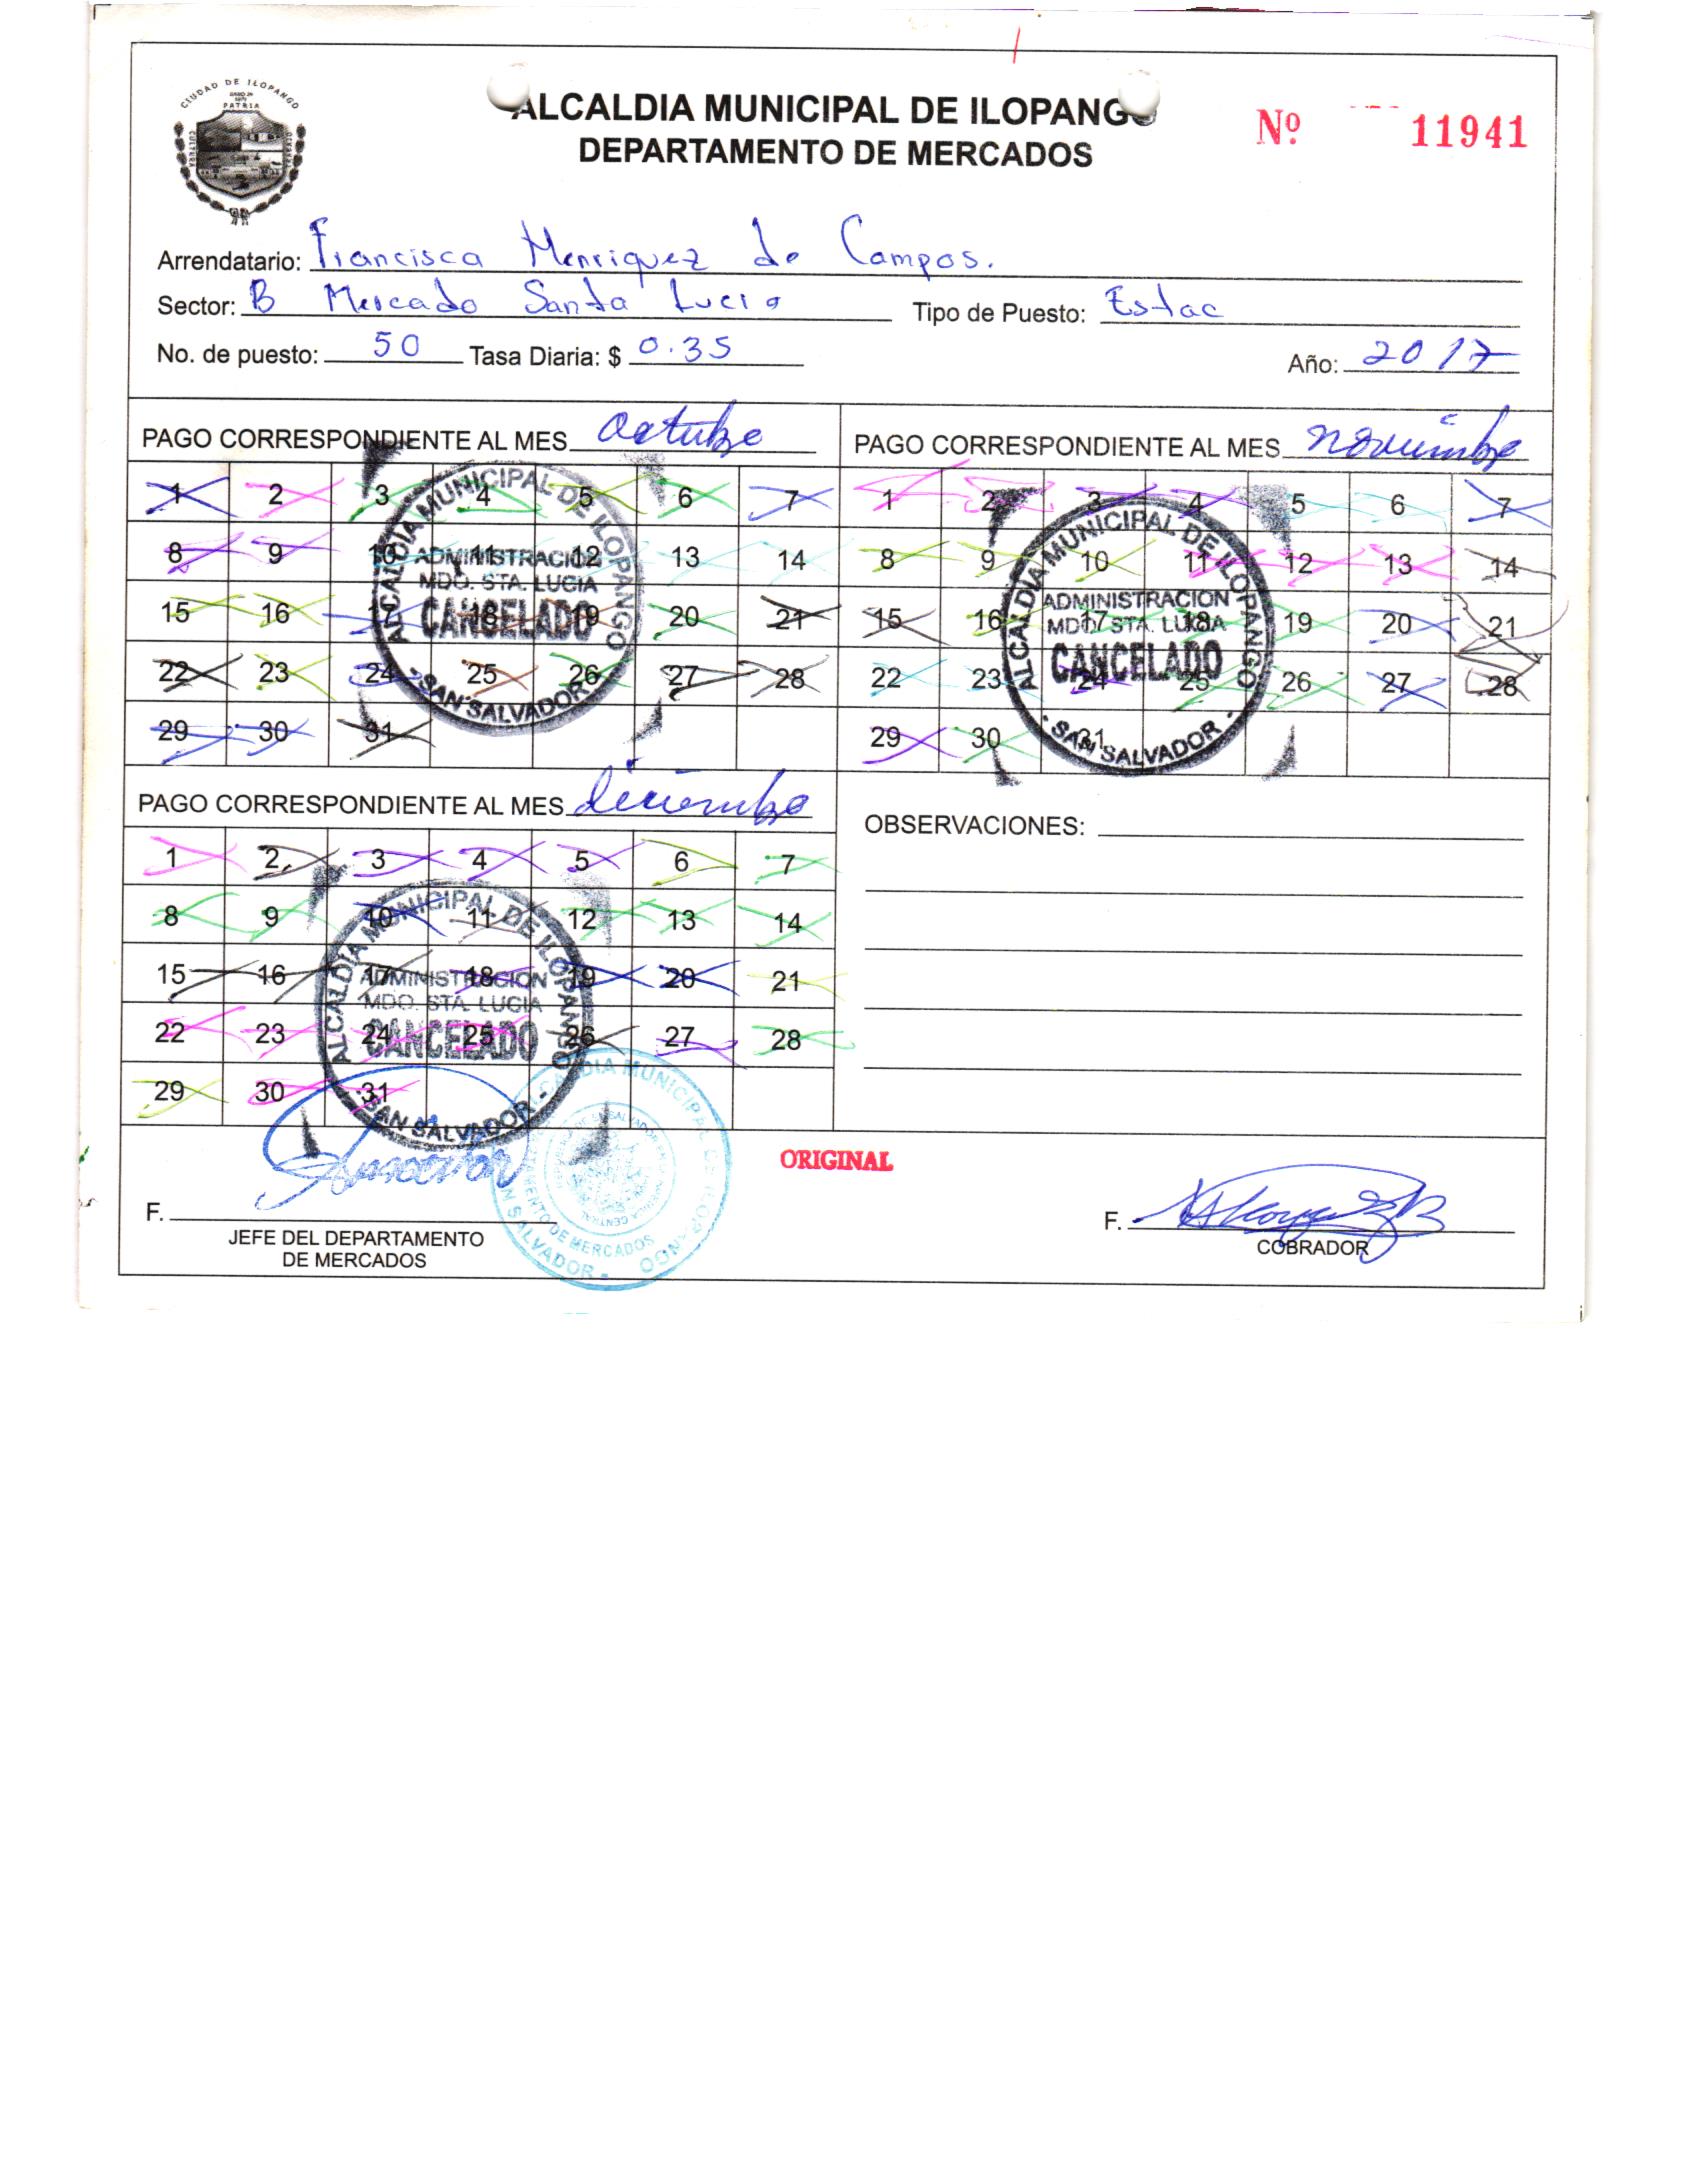 CIUDAD DE ILOPANGO
PATRIA
CULTURA
ALCALDIA MUNICIPAL DE ILOPANGO
DEPARTAMENTO DE MERCADOS
Nº 11941
Arrendatario: Francisca Menriquez de Campos.
Sector: B Mercado Santa Lucia Tipo de Puesto: Estac
No. de puesto: 50 Tasa Diaria: $ 0.35 Año: 2017
PAGO CORRESPONDIENTE AL MES octubre
1 2 3 4 5 6 7
8 9 10 11 12 13 14
15 16 17 18 19 20 21
22 23 24 25 26 27 28
29 30 31
ALCALDIA MUNICIPAL DE ILOPANGO
ADMINISTRACION
MDO. STA. LUCIA
CANCELADO
- SAN SALVADOR -
PAGO CORRESPONDIENTE AL MES noviembre
1 2 3 4 5 6 7
8 9 10 11 12 13 14
15 16 17 18 19 20 21
22 23 24 25 26 27 28
29 30 31
ALCALDIA MUNICIPAL DE ILOPANGO
ADMINISTRACION
MDO. STA. LUCIA
CANCELADO
- SAN SALVADOR -
PAGO CORRESPONDIENTE AL MES diciembre
1 2 3 4 5 6 7
8 9 10 11 12 13 14
15 16 17 18 19 20 21
22 23 24 25 26 27 28
29 30 31
ALCALDIA MUNICIPAL DE ILOPANGO
ADMINISTRACION
MDO. STA. LUCIA
CANCELADO
- SAN SALVADOR -
OBSERVACIONES:
ALCALDIA MUNICIPAL DE ILOPANGO
DE MERCADOS
SALVADOR -
ORIGINAL
F.
JEFE DEL DEPARTAMENTO
DE MERCADOS
F.
COBRADOR